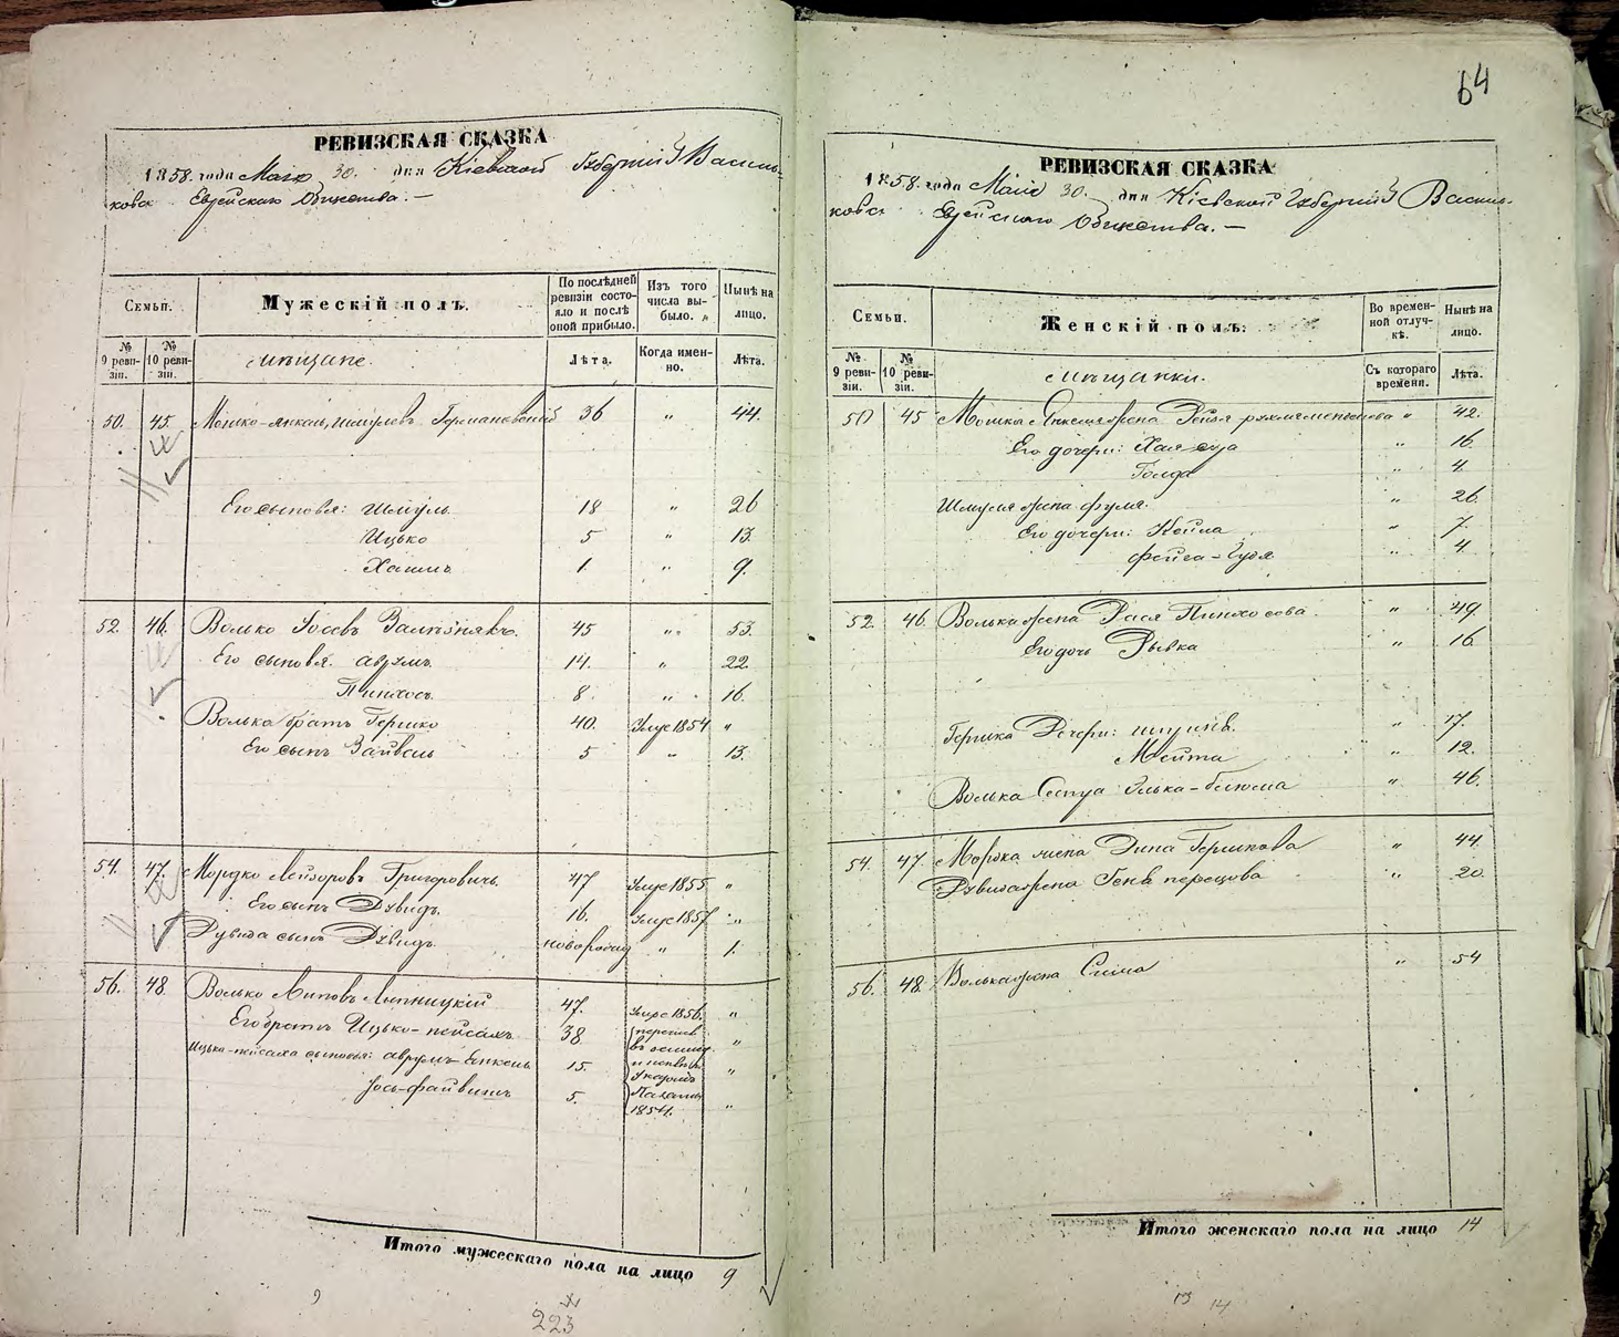 64
РЕВИЗСКАЯ СКАЗКА
1858. года Мая 30. дня Кіевской Губерніи Василь-
ковск Еврейскаго Общества. —
Семьи.
Мужескій полъ.
По послѣдней ревизіи состо-яло и послѣ оной прибыло.
Изъ того числа вы-было.
Нынѣ на лицо.
№ 9 реви-зіи.
№ 10 реви-зіи.
мѣщане.
Лѣта.
Когда имен-но.
Лѣта.
50. 45. Мошко-Янкель Шмулевъ 36 " 44.
Его сыновья: Шмуль 18 " 26
Ицько 5 " 13.
Хаимъ 1. " 9.
52. 46. Волько Іосевъ Зализнякъ. 45 " 53.
Его сыновья. Аврумъ. 14. " 22
Пинхосъ. 8. " 16.
Волька братъ Гершко 40. 1854 "
Его сынъ Зайвель 5 " 13.
54. 47. Мордко Лейзоровъ Григоровичъ. 47 1855 "
Его сынъ Дувидъ. 16. 1857 "
Дувида сынъ Дувидъ. новорожд " 1.
56. 48. Волько Липовъ Липницкій 47. 1856. "
Его братъ Ицько-Пейсахъ. 38 "
Ицька-Пейсаха сыновья: Аврумъ-Енкель 15. "
Іось-Файвишъ 5. 1854. "
Итого мужескаго пола на лицо 9
223
РЕВИЗСКАЯ СКАЗКА
1858. года Мая 30. дня Кіевской Губерніи Василь-
ковск Еврейскаго Общества. —
Семьи.
Женскій полъ.
Во времен-ной отлуч-кѣ.
Нынѣ на лицо.
№ 9 реви-зіи.
№ 10 реви-зіи.
мѣщанки.
Съ котораго времени.
Лѣта.
50 45 Мошка Янкеля жена Рейзя " 42.
Его дочери: Хая " 16
Голда " 4.
Шмуля жена Фрума. " 26.
Его дочери: Кейла " 7.
Фейга - " 4
52 46. Волька жена Рася Пинхосова " 49
Его дочь Рывка " 16.
Гершка Дочери: " 17.
Мейта " 12.
Волька Сестра " 46.
54. 47. Мордка жена Дина Гершкова " 44.
Дувида жена Геня Перецова " 20.
56. 48. Волька жена Сима " 54
Итого женскаго пола на лицо 14
13 14